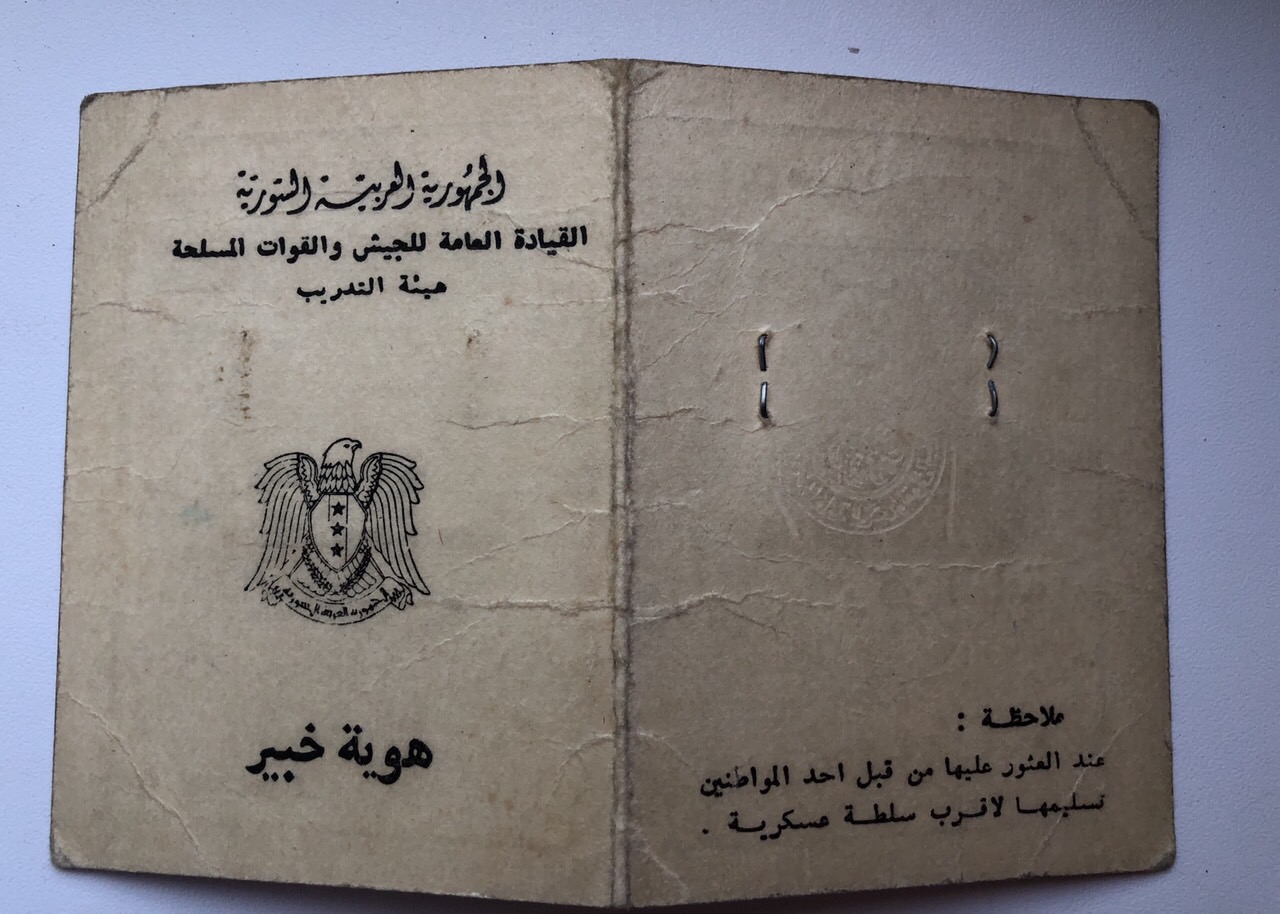 الجمهورية العربية السورية
القيادة العامة للجيش والقوات المسلحة
هيئة التدريب
هوية خبير
ملاحظة :
عند العثور عليها من قبل احد المواطنين
تسليمها لاقرب سلطة عسكرية .